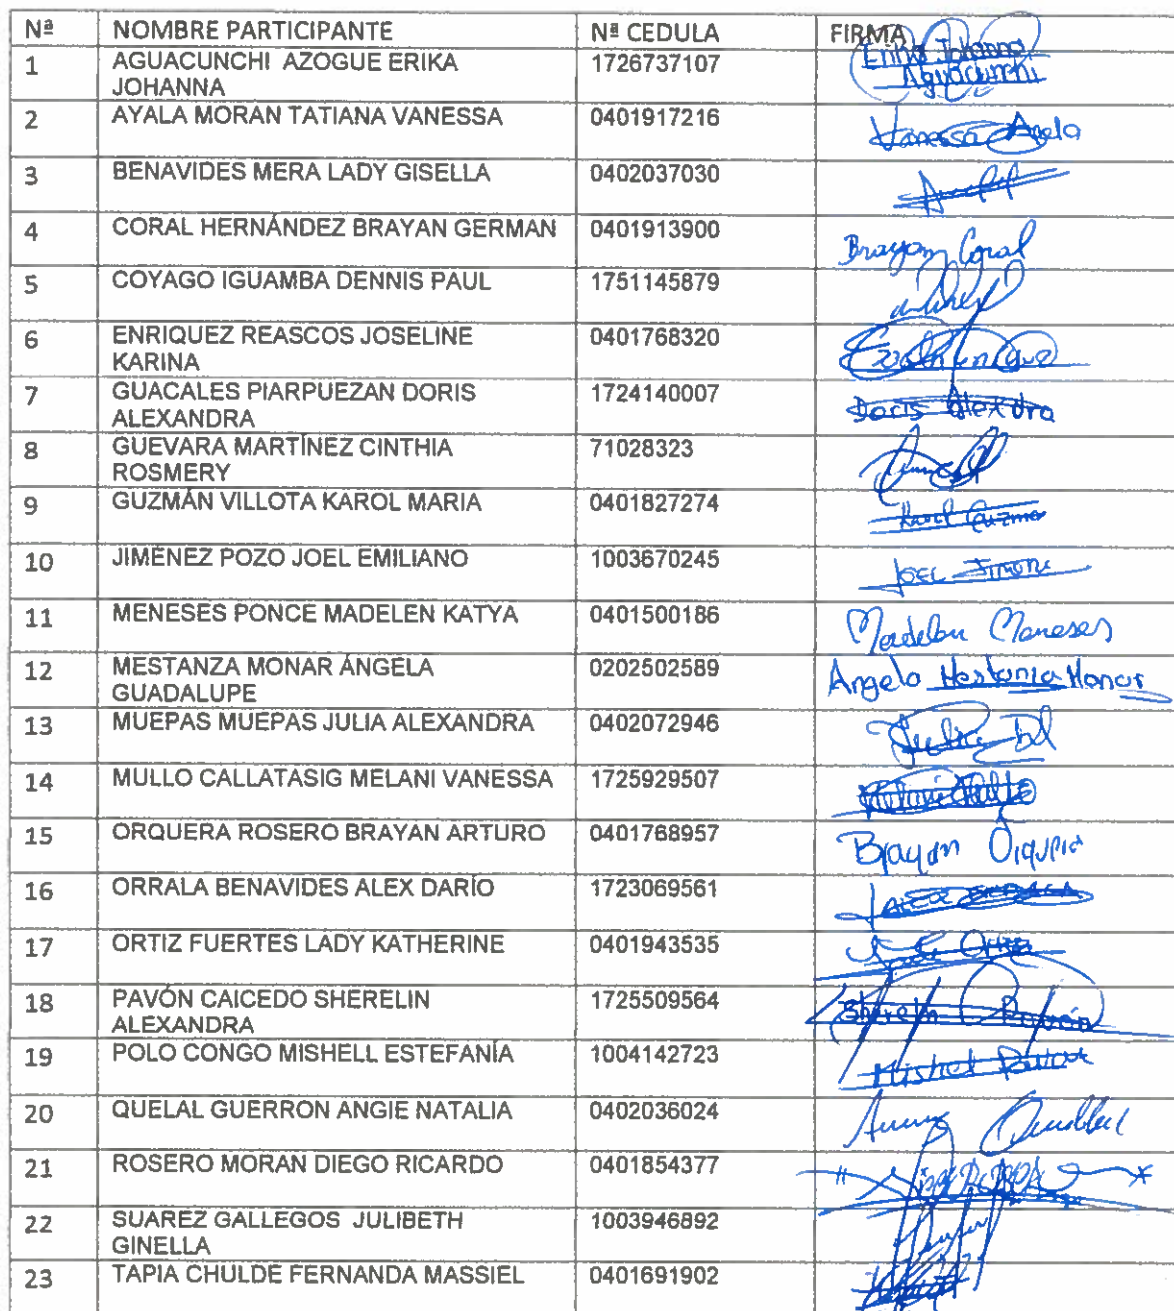 Nª NOMBRE PARTICIPANTE Nª CEDULA FIRMA
1 AGUACUNCHI AZOGUE ERIKA 1726737107 Erika Johanna
JOHANNA Aguacunchi
2 AYALA MORAN TATIANA VANESSA 0401917216 Vanessa Ayala
3 BENAVIDES MERA LADY GISELLA 0402037030
4 CORAL HERNÁNDEZ BRAYAN GERMAN 0401913900 Brayan Coral
5 COYAGO IGUAMBA DENNIS PAUL 1751145879
6 ENRIQUEZ REASCOS JOSELINE 0401768320
KARINA
7 GUACALES PIARPUEZAN DORIS 1724140007 Doris Alexdra
ALEXANDRA
8 GUEVARA MARTÍNEZ CINTHIA 71028323
ROSMERY
9 GUZMÁN VILLOTA KAROL MARIA 0401827274 Karol Guzman
10 JIMÉNEZ POZO JOEL EMILIANO 1003670245 JOEL
11 MENESES PONCE MADELEN KATYA 0401500186 Madelen Meneses
12 MESTANZA MONAR ÁNGELA 0202502589 Angela Mestanza Monar
GUADALUPE
13 MUEPAS MUEPAS JULIA ALEXANDRA 0402072946 Julia
14 MULLO CALLATASIG MELANI VANESSA 1725929507 Melani Mullo
15 ORQUERA ROSERO BRAYAN ARTURO 0401768957 Brayan Orquera
16 ORRALA BENAVIDES ALEX DARÍO 1723069561
17 ORTIZ FUERTES LADY KATHERINE 0401943535 Ortiz
18 PAVÓN CAICEDO SHERELIN 1725509564 Sherelin Pavón
ALEXANDRA
19 POLO CONGO MISHELL ESTEFANÍA 1004142723 Mishel
20 QUELAL GUERRON ANGIE NATALIA 0402036024
21 ROSERO MORAN DIEGO RICARDO 0401854377
22 SUAREZ GALLEGOS JULIBETH 1003946892
GINELLA
23 TAPIA CHULDE FERNANDA MASSIEL 0401691902